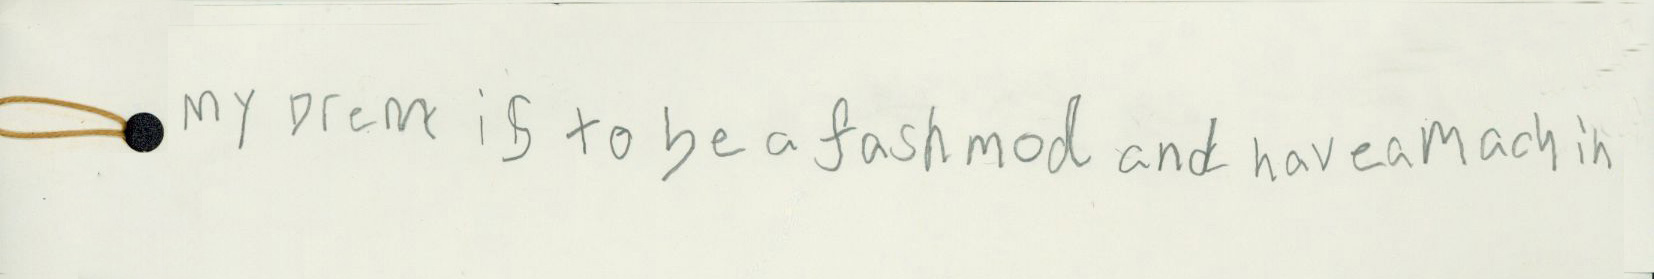 my Dreme is to be a fash mod and have a machin